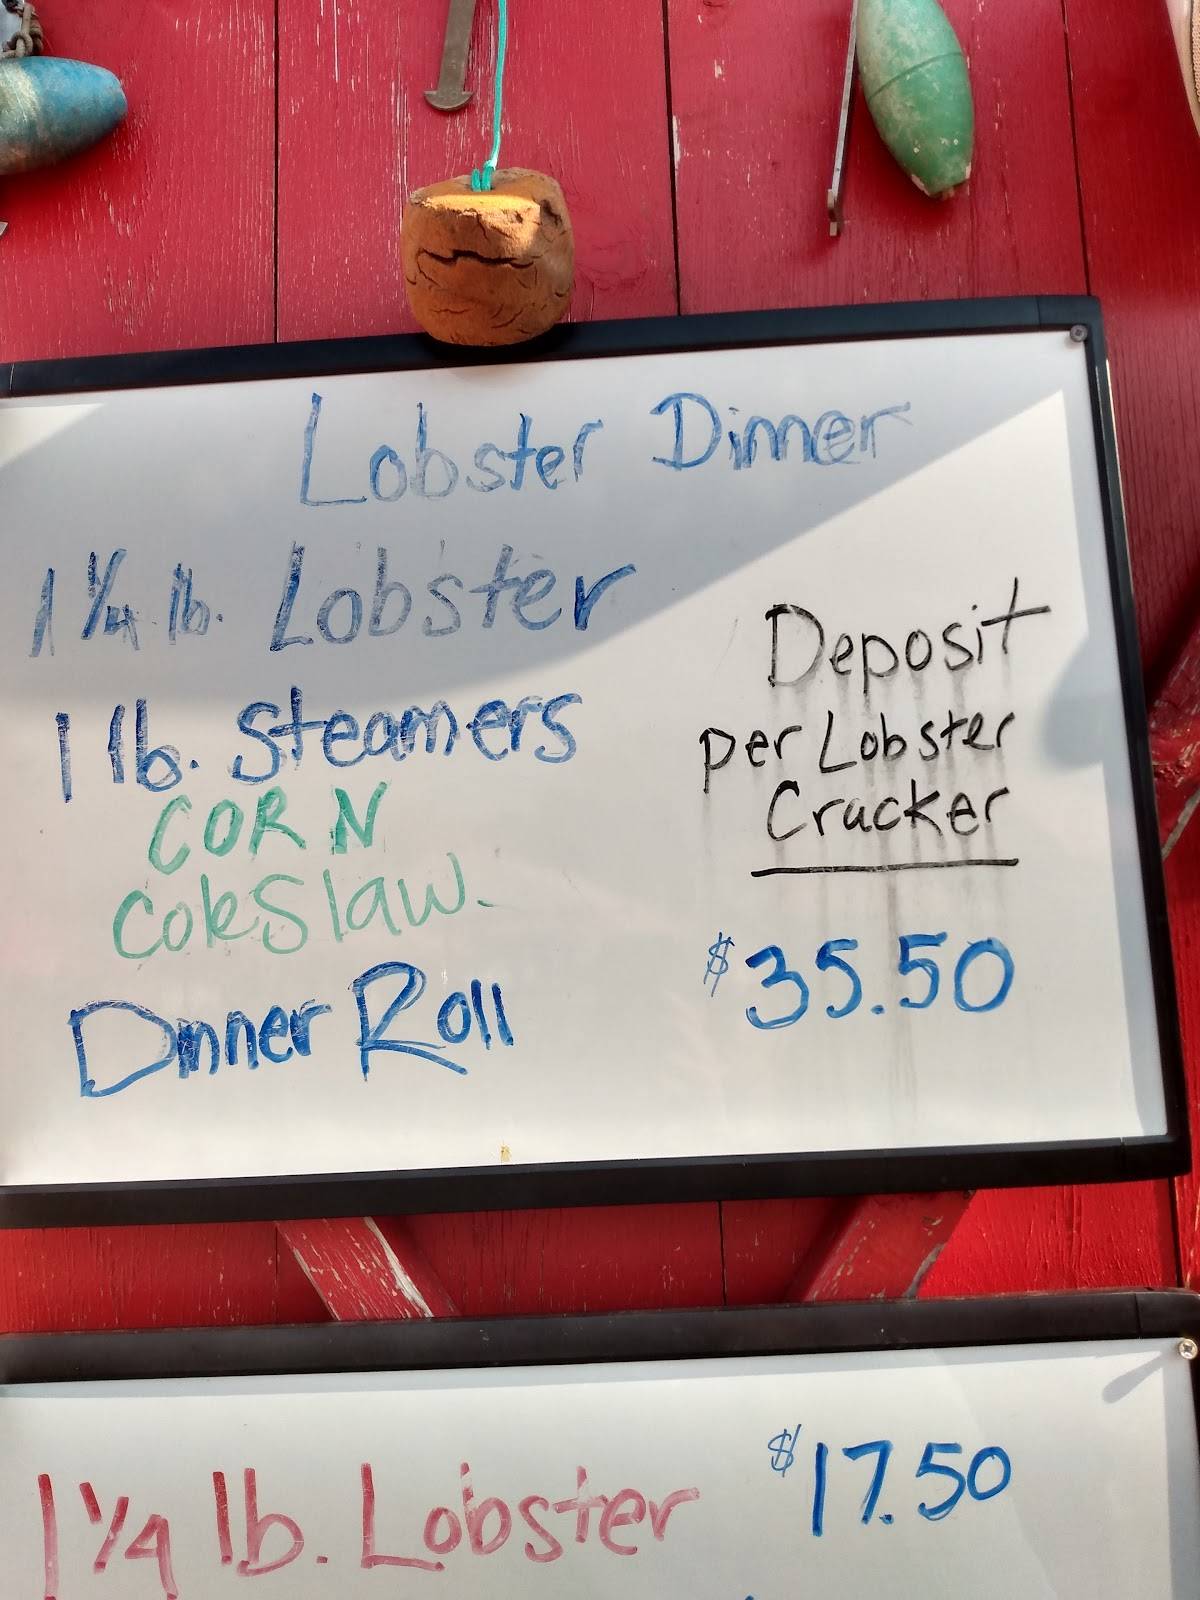 Lobster Dinner
1 1/4 lb. Lobster
1 lb. Steamers
CORN
Coleslaw.
Dinner Roll
Deposit
per Lobster
Cracker
$35.50
1 1/4 lb. Lobster $17.50